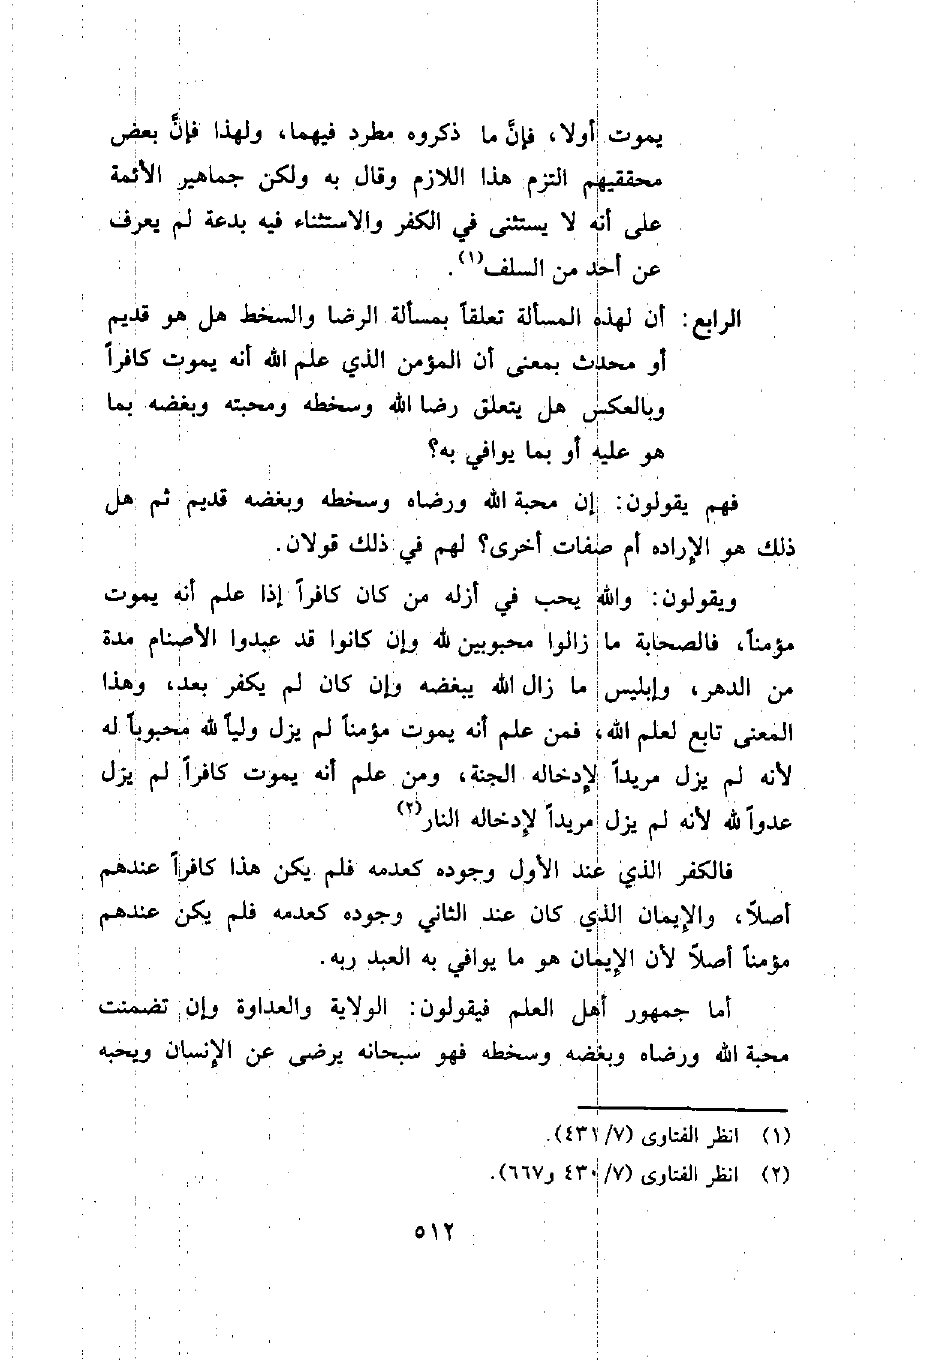 يموت أولا، فإنَّ ما ذكروه مطرد فيهما، ولهذا فإنَّ بعض
محققيهم التزم هذا اللازم وقال به ولكن جماهير الأئمة
على أنه لا يستثنى في الكفر والاستثناء فيه بدعة لم يعرف
عن أحد من السلف(١).
الرابع: أن لهذه المسألة تعلقاً بمسألة الرضا والسخط هل هو قديم
أو محدث بمعنى أن المؤمن الذي علم الله أنه يموت كافراً
وبالعكس هل يتعلق رضا الله وسخطه ومحبته وبغضه بما
هو عليه أو بما يوافي به؟
فهم يقولون: إن محبة الله ورضاه وسخطه وبغضه قديم ثم هل
ذلك هو الإراده أم صفات أخرى؟ لهم في ذلك قولان.
ويقولون: والله يحب في أزله من كان كافراً إذا علم أنه يموت
مؤمناً، فالصحابة ما زالوا محبوبين لله وإن كانوا قد عبدوا الأصنام مدة
من الدهر، وإبليس ما زال الله يبغضه وإن كان لم يكفر بعد، وهذا
المعنى تابع لعلم الله، فمن علم أنه يموت مؤمناً لم يزل ولياً لله محبوباً له
لأنه لم يزل مريداً لإدخاله الجنة، ومن علم أنه يموت كافراً لم يزل
عدواً لله لأنه لم يزل مريداً لإدخاله النار(٢)
فالكفر الذي عند الأول وجوده كعدمه فلم يكن هذا كافراً عندهم
أصلاً، والإيمان الذي كان عند الثاني وجوده كعدمه فلم يكن عندهم
مؤمناً أصلاً لأن الإيمان هو ما يوافي به العبد ربه.
أما جمهور أهل العلم فيقولون: الولاية والعداوة وإن تضمنت
محبة الله ورضاه وبغضه وسخطه فهو سبحانه يرضى عن الإنسان ويحبه
(١) انظر الفتاوى (٧/ ٤٣١).
(٢) انظر الفتاوى (٧/ ٤٣٠ و٦٦٧).
٥١٢